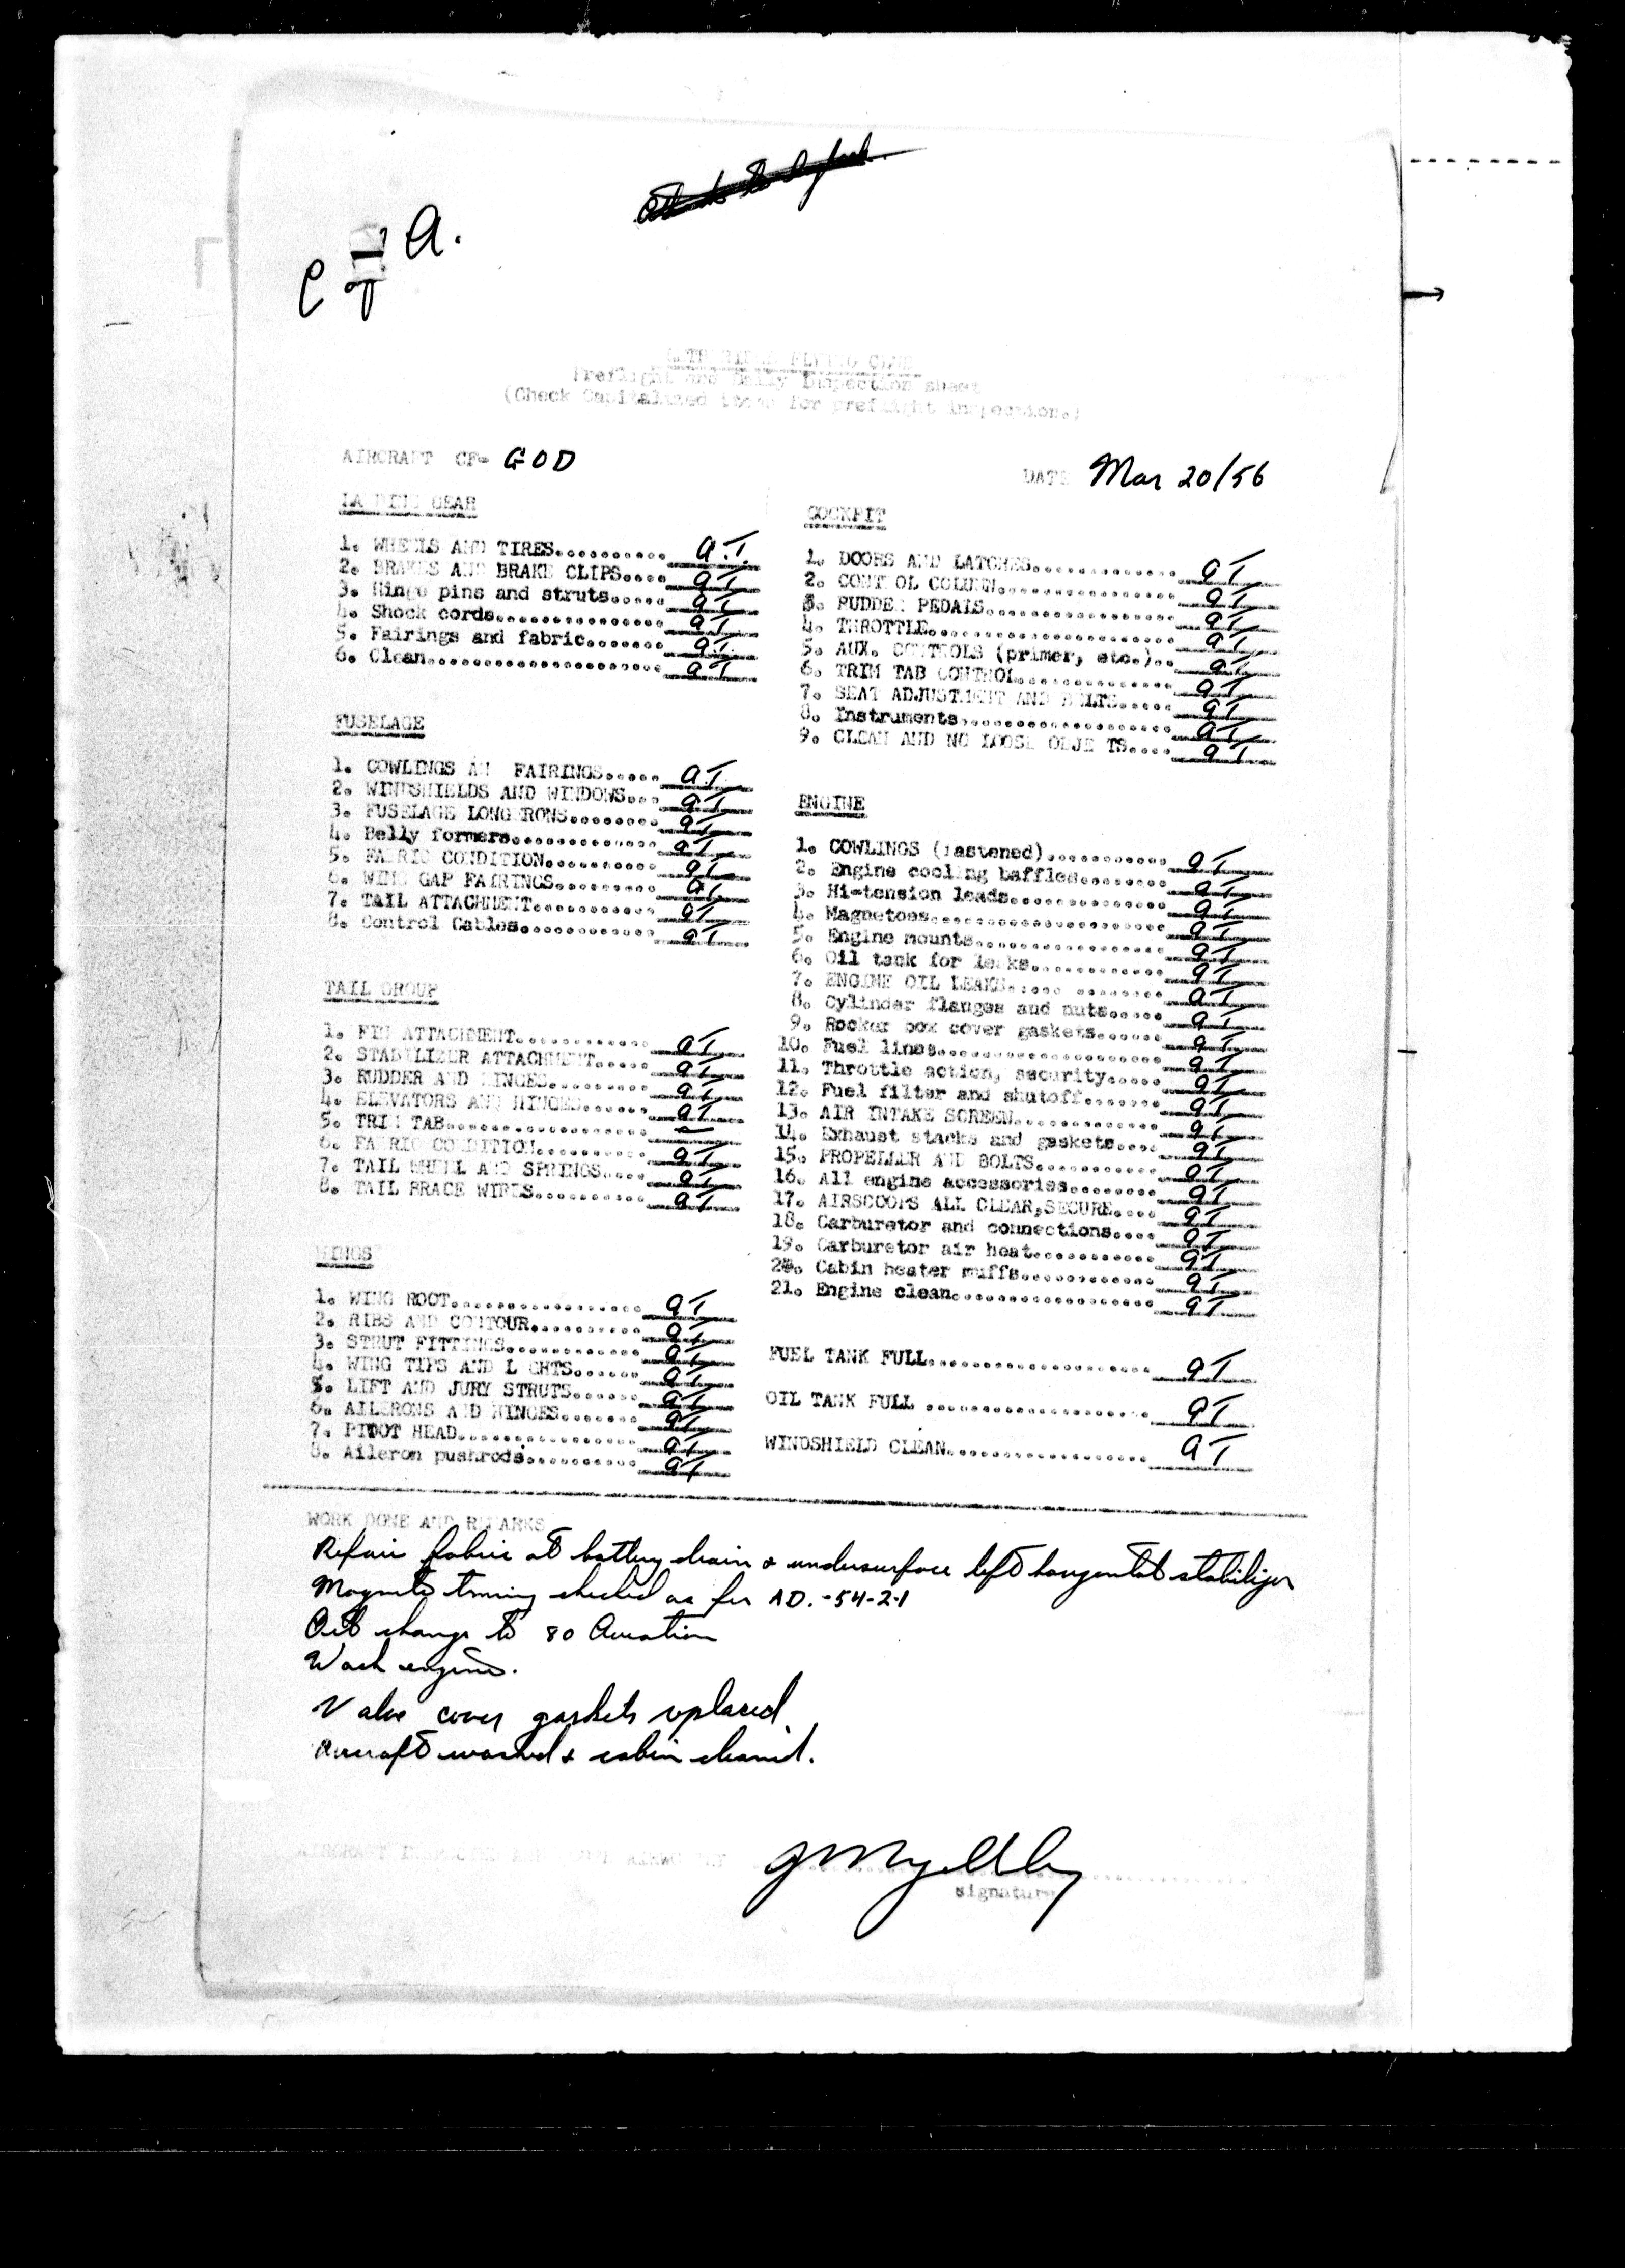 a.
Preflight and Daily Inspection sheet
(Check Capitalized items for preflight inspection.)
AIRCRAFT CF- GOD
DATE Mar 20/56
LANDING GEAR
1. WHEELS AND TIRES.......... a.T.
2. BRAKES AND BRAKE CLIPS.... aT
3. Hinge pins and struts..... aT
4. Shock cords............... aT
5. Fairings and fabric....... aT
6. Clean..................... aT
FUSELAGE
1. COWLINGS AND FAIRINGS..... aT
2. WINDSHIELDS AND WINDOWS... aT
3. FUSELAGE LONGERONS........ aT
4. Belly formers............. aT
5. FABRIC CONDITION.......... aT
6. WING GAP FAIRINGS......... aT
7. TAIL ATTACHMENT........... aT
8. Control Cables............ aT
TAIL GROUP
1. FIN ATTACHMENT............ aT
2. STABILIZER ATTACHMENT..... aT
3. RUDDER AND HINGES......... aT
4. ELEVATORS AND HINGES...... aT
5. TRIM TAB.................. –
6. FABRIC CONDITION.......... aT
7. TAIL WHEEL AND SPRINGS.... aT
8. TAIL BRACE WIRES.......... aT
WINGS
1. WING ROOT................. aT
2. RIBS AND CONTOUR.......... aT
3. STRUT FITTINGS............ aT
4. WING TIPS AND LIGHTS...... aT
5. LIFT AND JURY STRUTS...... aT
6. AILERONS AND HINGES....... aT
7. PITOT HEAD................ aT
8. Aileron pushrods.......... aT
COCKPIT
1. DOORS AND LATCHES............. aT
2. CONTROL COLUMN................ aT
3. RUDDER PEDALS................. aT
4. THROTTLE...................... aT
5. AUX. CONTROLS (primer, etc.).. aT
6. TRIM TAB CONTROL.............. aT
7. SEAT ADJUSTMENT AND BELTS..... aT
8. Instruments................... aT
9. CLEAN AND NO LOOSE OBJECTS.... aT
ENGINE
1. COWLINGS (fastened)........... aT
2. Engine cooling baffles........ aT
3. Hi-tension leads.............. aT
4. Magnetoes..................... aT
5. Engine mounts................. aT
6. Oil tank for leaks............ aT
7. ENGINE OIL LEAKS.............. aT
8. Cylinder flanges and nuts..... aT
9. Rocker box cover gaskets...... aT
10. Fuel lines................... aT
11. Throttle action, security.... aT
12. Fuel filter and shutoff...... aT
13. AIR INTAKE SCREEN............ aT
14. Exhaust stacks and gaskets... aT
15. PROPELLER AND BOLTS.......... aT
16. All engine accessories....... aT
17. AIRSCOOPS ALL CLEAR,SECURE... aT
18. Carburetor and connections... aT
19. Carburetor air heat.......... aT
20. Cabin heater muffs........... aT
21. Engine clean................. aT
FUEL TANK FULL................... aT
OIL TANK FULL ................... aT
WINDSHIELD CLEAN................. aT
WORK DONE AND REMARKS
Repair fabric at battery drain & undersurface left horizontal stabilizer
Magneto timing checked as per AD.-54-2-1
Oil change to 80 Aviation
Wash engine.
Valve cover gaskets replaced
Aircraft washed & cabin cleaned.
AIRCRAFT
signature